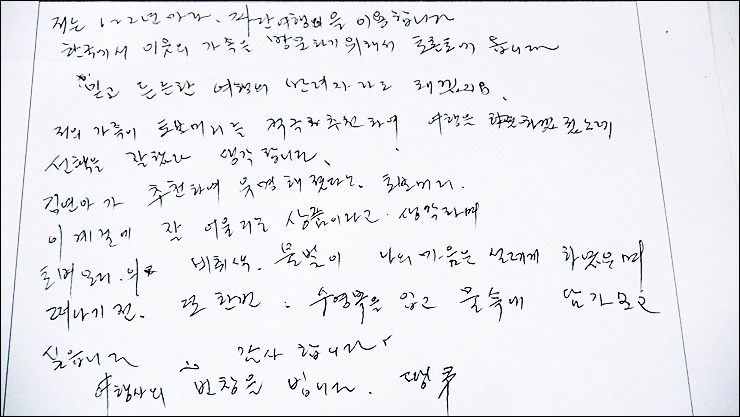 저는 1~2년마다. 자간여행을 이용합니다
한국에서 이웃의 가족을 방문하기 위해서 토론토에 옵니다
믿고 든든한 여행의 반려자라고 해겠지요.
저의 가족이 토버머리를 적극 추천하여 여행을 하였는데
선택을 잘했다 생각합니다.
김연아가 추천하여 유명해졌다는 토버머리.
이 계절에 잘 어울리는 상품이라고 생각하며
토버머리.의 비취색. 물빛이 나의 마음을 설레게 하였으며
떠나기 전. 또 한번. 수영복을 입고 물속에 담가보고
싶습니다 감사 합니다
여행사의 번창을 빕니다.